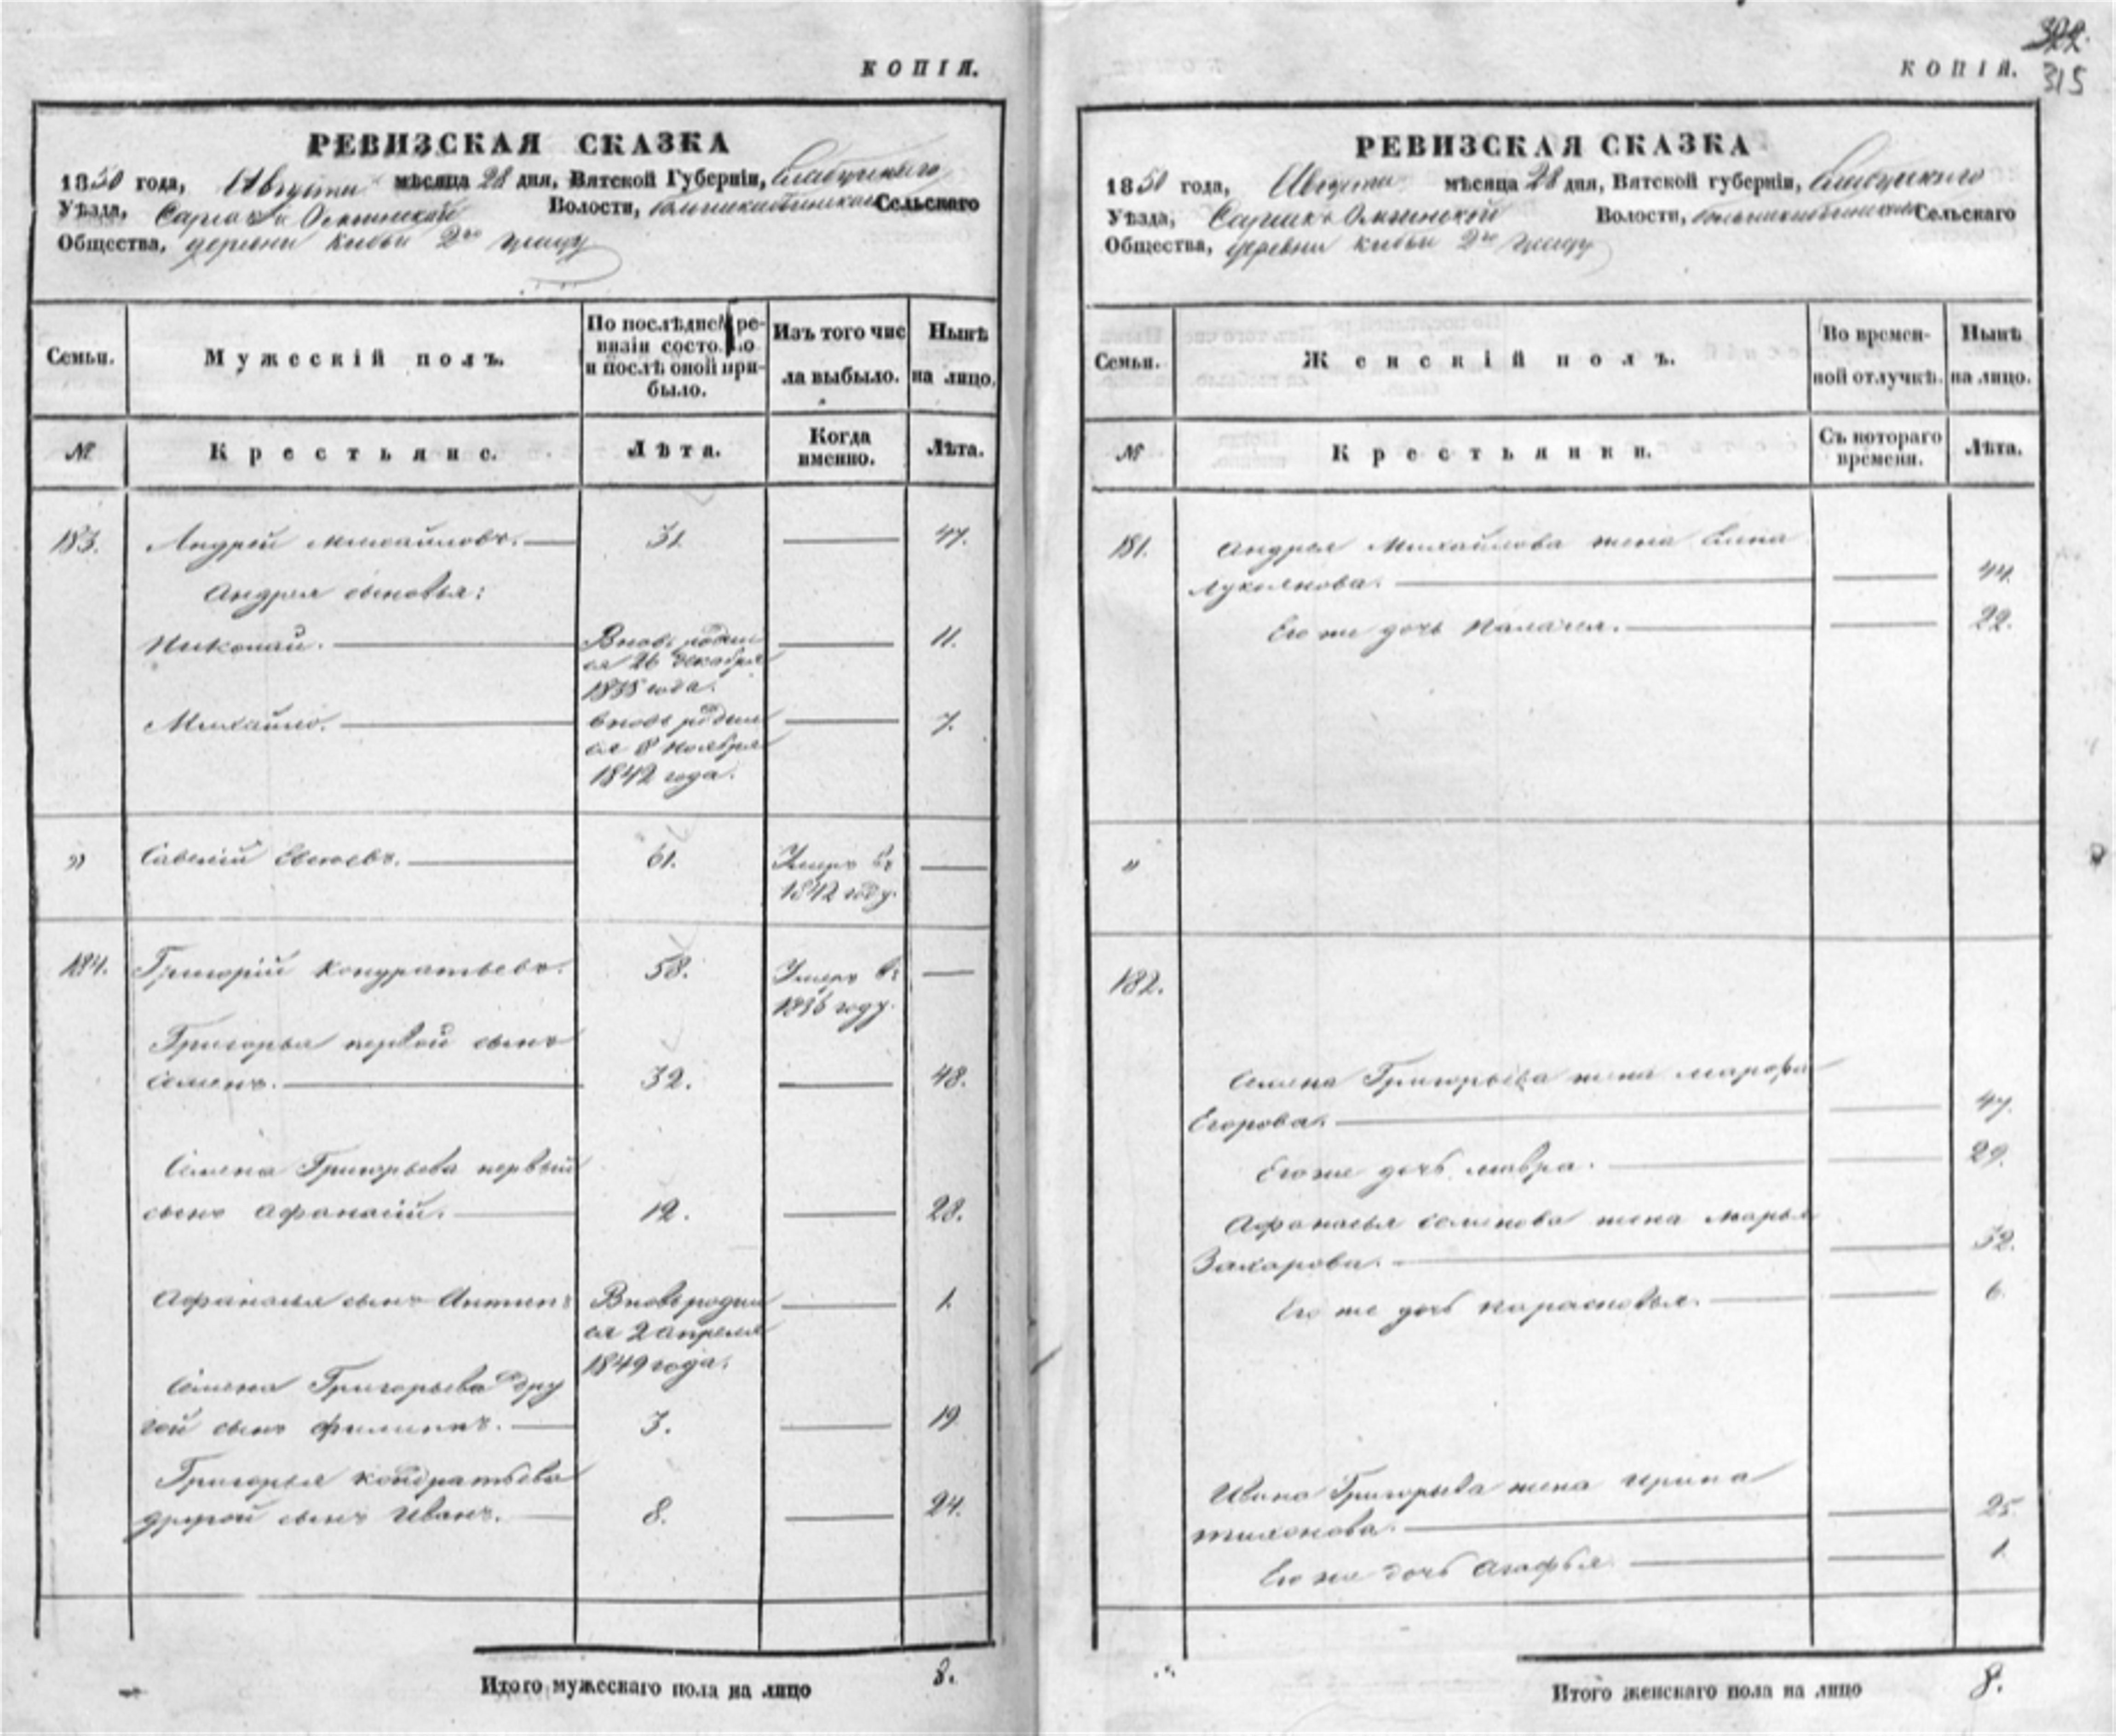 КОПІЯ.
РЕВИЗСКАЯ СКАЗКА
1850 года, Августа мѣсяца 28 дня, Вятской Губерніи, Елабужскаго
Уѣзда, Волости, Сельскаго
Общества, деревни
Семьи.
Мужескій полъ.
По послѣдней ре-
визіи состояло
и послѣ оной при-
было.
Изъ того чис
ла выбыло.
Нынѣ
на лицо.
№
Крестьяне.
Лѣта.
Когда
именно.
Лѣта.
183. Андрей Михайловъ. 31. 47.
Андрея сыновья:
Николай. Вновь родил 11.
ся 26 декабря
1838 года.
Михайло. вновь родил 7.
ся 8 ноября
1842 года.
„ Савелій 61. Умеръ въ
1842 году.
184. Григорій Кондратьевъ. 58. Умеръ въ
1836 году.
Григорья первой сынъ
Семенъ. 32. 48.
Семена Григорьева первый
сынъ Афанасій. 12. 28.
Афанасья сынъ Антипъ Вновь родил 1.
ся 2 апреля
1849 года.
Семена Григорьева дру
гой сынъ Филиппъ. 3. 19.
Григорья Кондратьева
другой сынъ Иванъ. 8. 24.
Итого мужескаго пола на лицо 8.
322.
315
КОПІЯ.
РЕВИЗСКАЯ СКАЗКА
1850 года, Августа мѣсяца 28 дня, Вятской губерніи, Елабужскаго
Уѣзда, Волости, Сельскаго
Общества, деревни
Семьи.
Женскій полъ.
Во времен-
ной отлучкѣ.
Нынѣ
на лицо.
№
Крестьянки.
Съ котораго
времени.
Лѣта.
181. Андрея Михайлова жена Елена
Лукоянова. 44.
Его же дочь Палагея. 22.
„
182.
Семена Григорьева жена Марфа
Егорова. 47.
Его же дочь Мавра. 29.
Афанасья Семенова жена Марья
Захарова. 32.
Его же дочь Парасковья. 6.
Ивана Григорьева жена Ирина
Тихонова. 25.
Его же дочь Агафья. 1.
Итого женскаго пола на лицо 8.